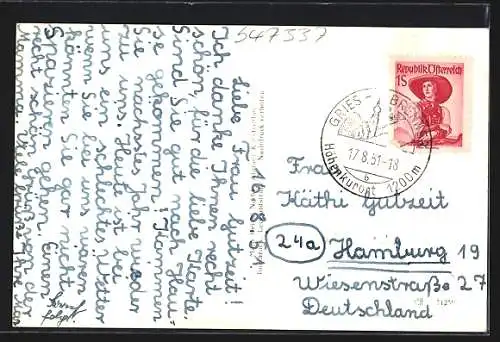 547337
16.8.51.
Liebe Frau Gutzeit!
Ich danke Ihnen recht
schön, für die liebe Karte.
Sind Sie gut nach Hau-
se gekommen! Kommen
Sie nächstes Jahr wieder
zu uns. Heute ist bei
uns ein schlechtes Wetter
wenn Sie bei uns waren
könnten Sie gar nicht
Spazieren gehen. Einen
recht schön Gruß von der
Mamma. Viele Grüße
Nachdruck verboten
Republik Österreich
1S
GRIES - BRENNER
17.8.51-18
b
Höhenkurort 1200m
Frau
Käthi Gutzeit
24a Hamburg 19
Wiesenstraße 27
Deutschland